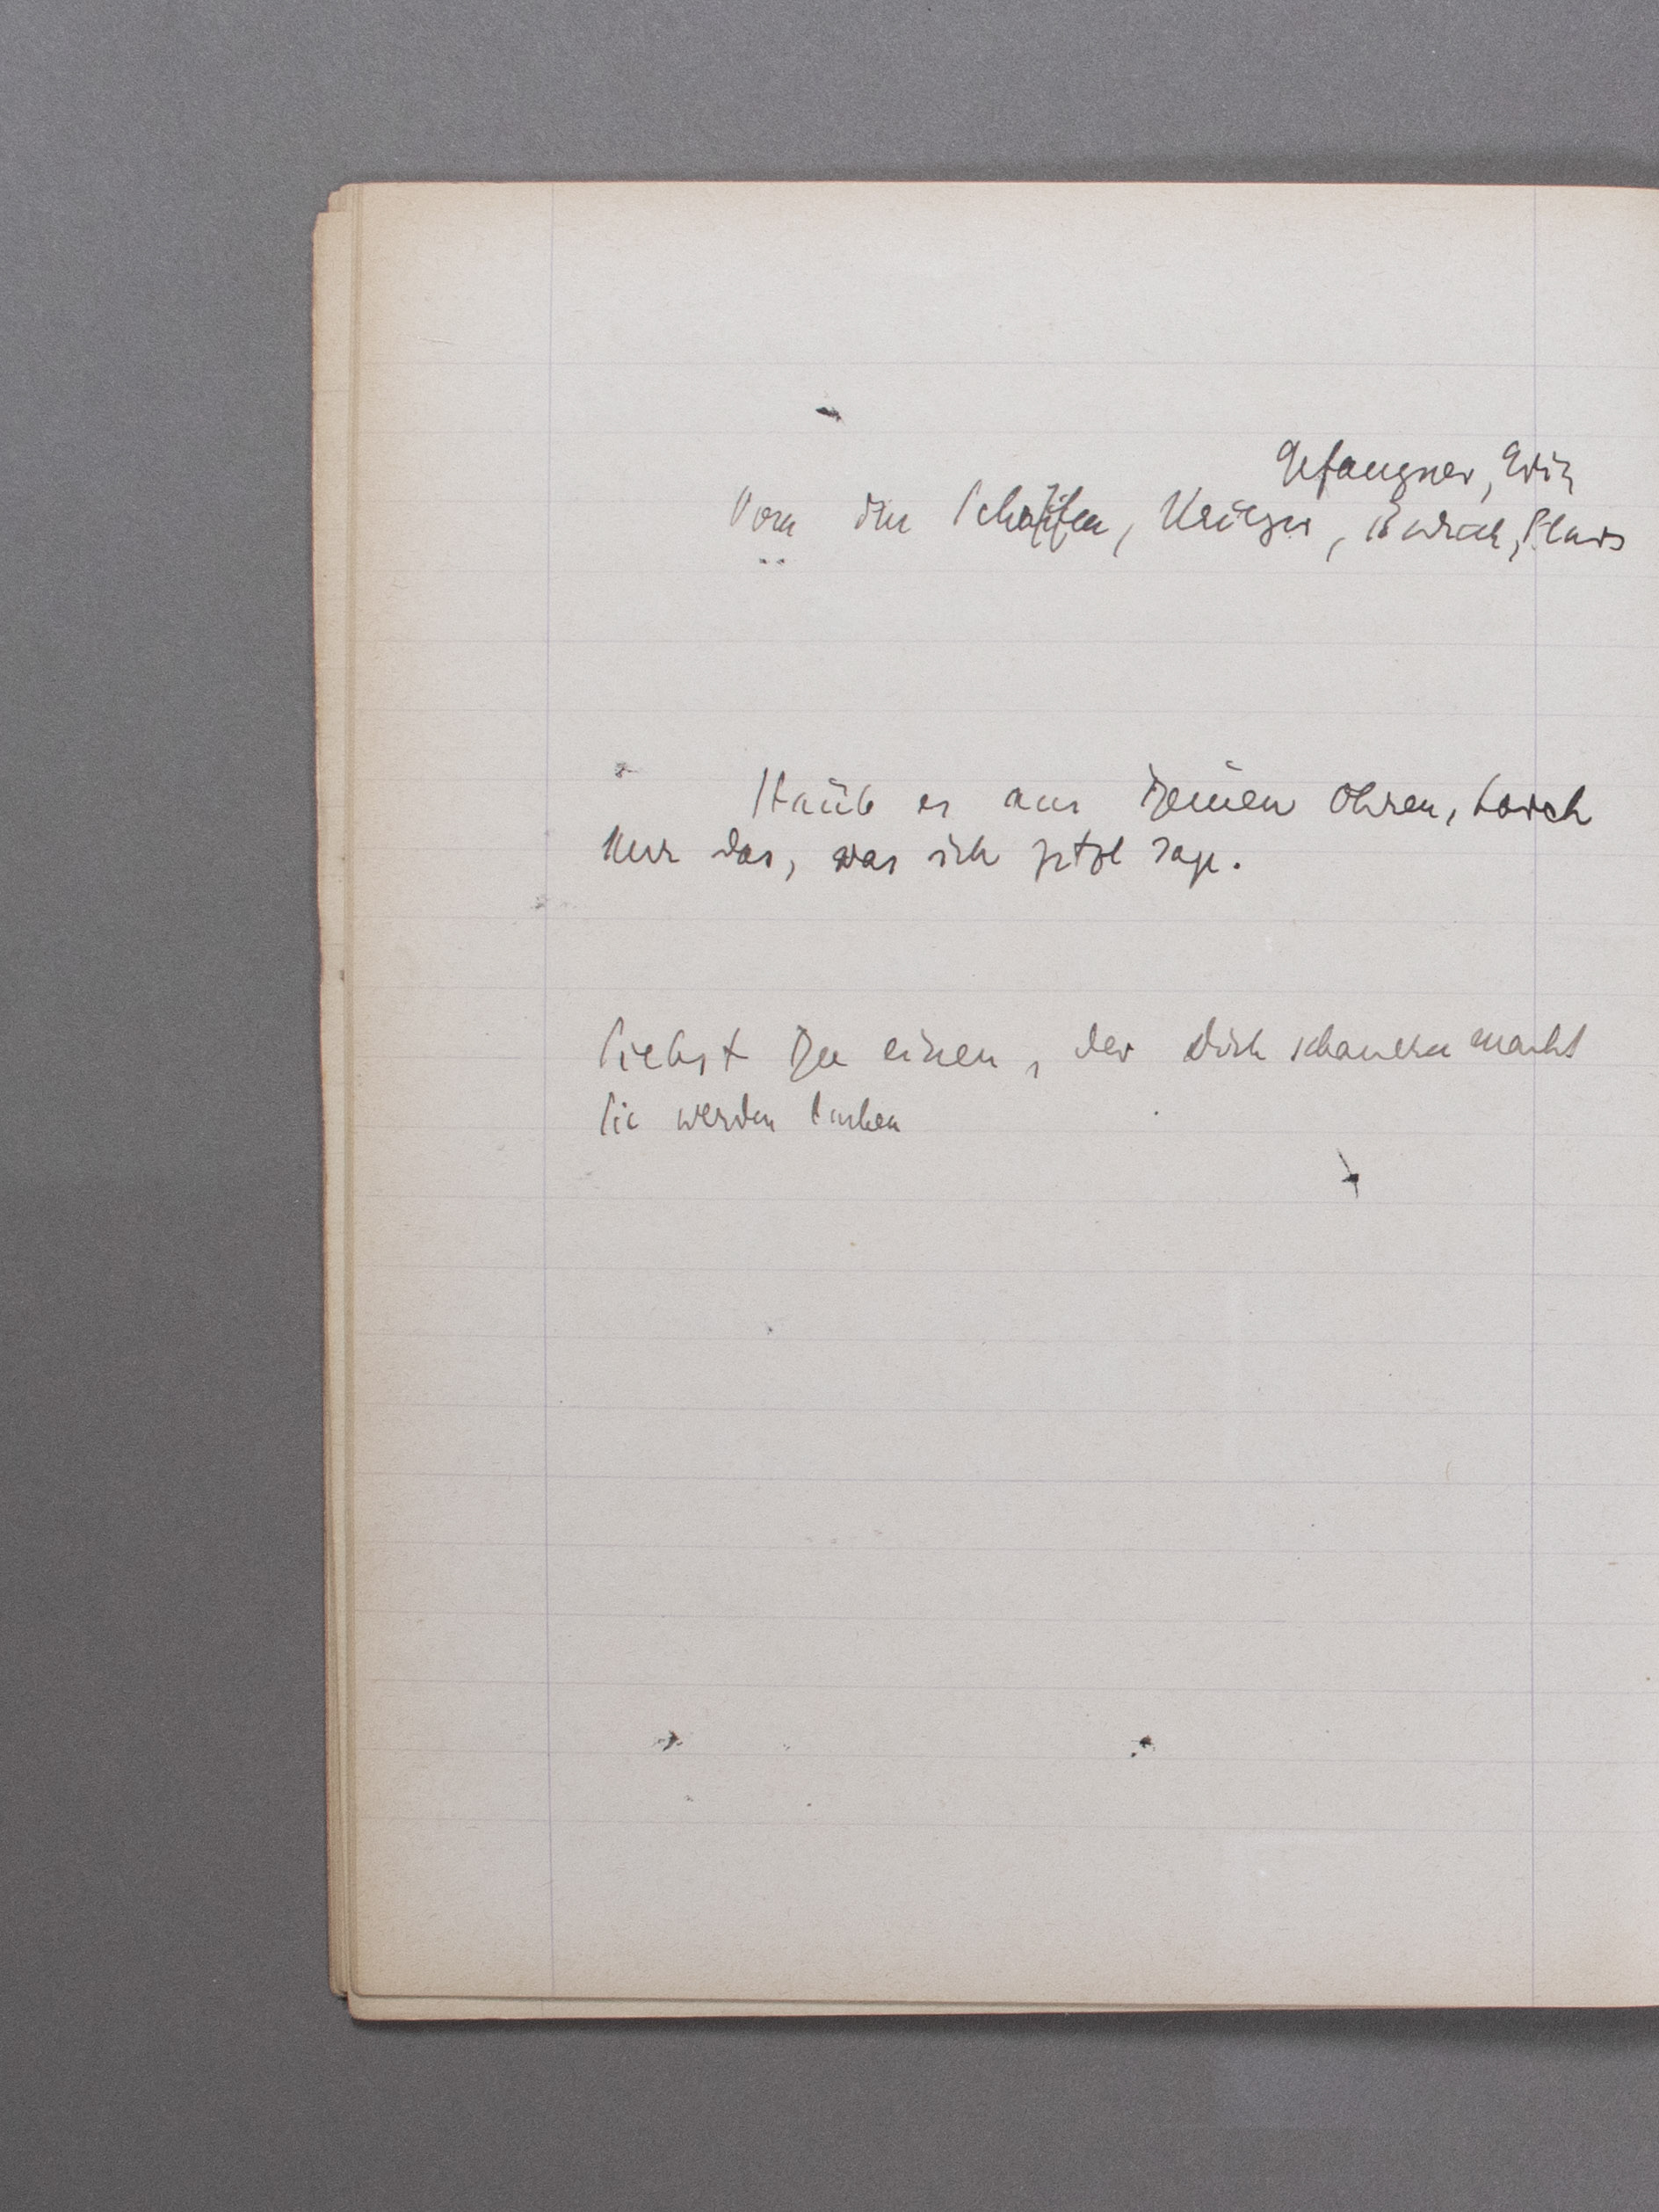 Gefangner, Erich
Von den Schiffen, Krieger,
Stäub es aus Deinen Ohren, horch
Nur das, was ich jetzt sage.
Siehst Du einen, der Dich schauern macht
Sie werden lachen